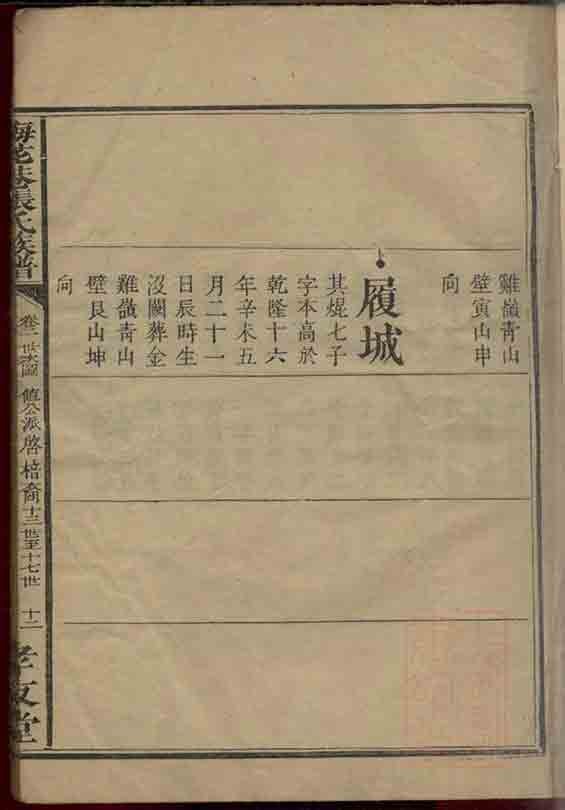 雞嶺青山
壁寅山申
向
履城
其焜七子
字本高於
乾隆十六
年辛未五
月二十一
日辰時生
沒闕葬金
雞嶺青山
壁艮山坤
向
梅花巷張氏族譜
卷二世系圖 值公派啓梧裔十三世至十七世 十二
孝友堂